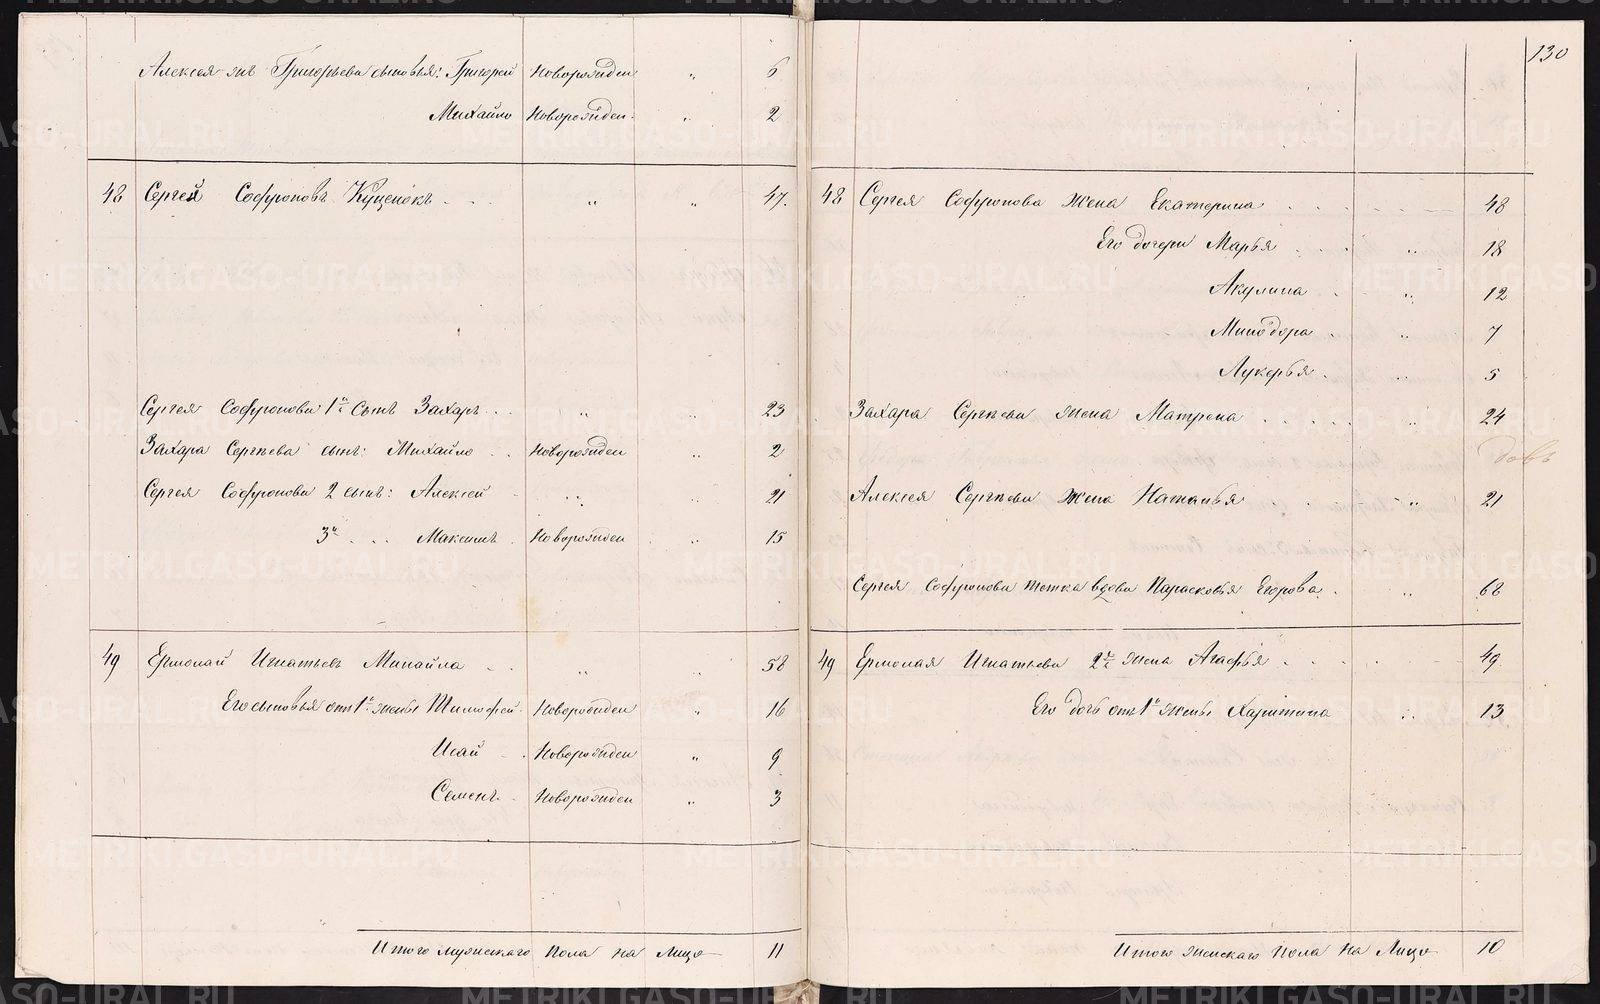 130
Алексея-же Григорьева сыновья: Григорей Новорожден „ 6
Михайло Новорожден. „ 2
48 Сергей Софроновъ Куценокъ - - - „ „ 47.
Сергея Софронова 1й сынъ Захаръ . . „ „ 23
Захара Сергѣева сынъ: Михайло . . Новорожден „ 2
Сергея Софронова 2 сынъ: Алексей - „ „ 21
3й . . . Максимъ . Новорожден . „ 15
49 Ермолай Игнатьевъ Минайла - . „ „ 58
Его сыновья отъ 1й жены Тимофей . Новорожден „ 16
Исай - . Новорожден „ 9
Семенъ . Новорожден „ 3
Итого мужескаго пола на Лицо 11
48 Сергея Софронова жена Екатерина . . . . 48
Его дочери Марья . . . „ 18
Акулина . . „ 12
Минодора . „ 7
Лукерья . „ 5
Захара Сергѣева жена Матрена . . . . . „ 24
Алексея Сергѣева жена Наталья . . „ 21
Сергея Софронова тетка вдова Парасковья Егорова . „ 68
49 Ермолая Игнатьева 2я жена Агафья . . . . 49.
Его дочь отъ 1й жены Харитина „ 13
Итого женскаго пола на Лицо 10
METRIKI.GASO-URAL.RU